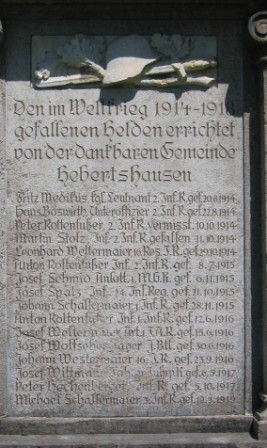 Den im Weltkrieg 1914-1918
gefallenen Helden errichtet
von der dankbaren Gemeinde
Hebertshausen
Fritz Medikus kgl. Leutnant 2. Inf. R. gef. 20.8.1914
Hans Böswirth Unteroffizier 2. Inf. R. gef. 22.8.1914
Peter Rottenfußer 2. Inf. R. vermisst 10.10.1914
Martin Stolz, Inf. 2. Inf. R. gefallen 31.10.1914
Leonhard Westermaier 16. Res. J.R. gef. 29.10.1914
Anton Rottenfußer Inf. 2. Inf. R. gef. 8.7.1915
Josef Schmid M.G.K. gef. 6.11.1915
Josef Spatz Inf. 14. Inf. Reg. gef. 11.10.1915
Johann Schaffermaier Inf. R. gef. 28.11.1915
Anton Rottenfußer Inf. 1. Inf. R. gef. 12.6.1916
Josef Westermaier Inf. R. gef. 15.6.1916
Josef Jäger gef. 30.6.1916
Johann Westermaier 16. J.R. gef. 23.9.1916
Josef gef. 6.1.1917
Peter Inf. R. gef. 5.10.1917
Michael Schaffermaier Inf. R. gef.